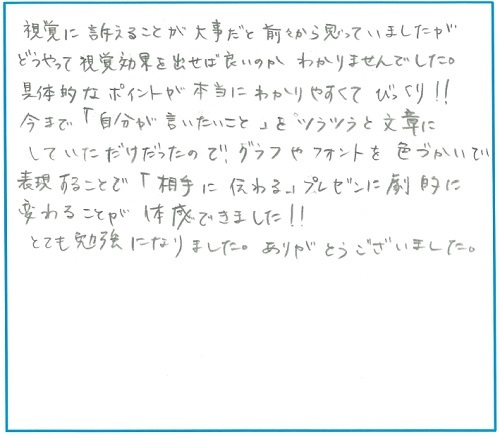 視覚に訴えることが大事だと前々から思っていましたが
どうやって視覚効果を出せば良いのか わかりませんでした。
具体的なポイントが本当にわかりやすくて びっくり!!
今まで「自分が言いたいこと」をツラツラと文章に
していただけだったので、グラフやフォントを色づかいで
表現することで「相手に伝わる」プレゼンに劇的に
変わることが 体感できました!!
とても勉強になりました。ありがとうございました。